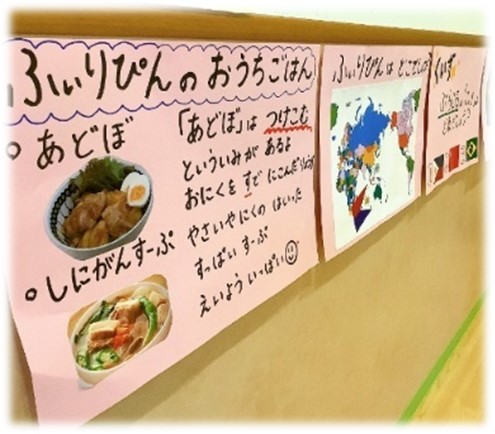 ふぃりぴんのおうちごはん
あどぼ
「あどぼ」は つけこむ
といういみが あるよ
おにくを すで にこんだりょうり
しにがんすーぷ
やさいやにくの はいった
すっぱい すーぷ
えいよう いっぱい
ふぃりぴんは どこでしょう
くいず